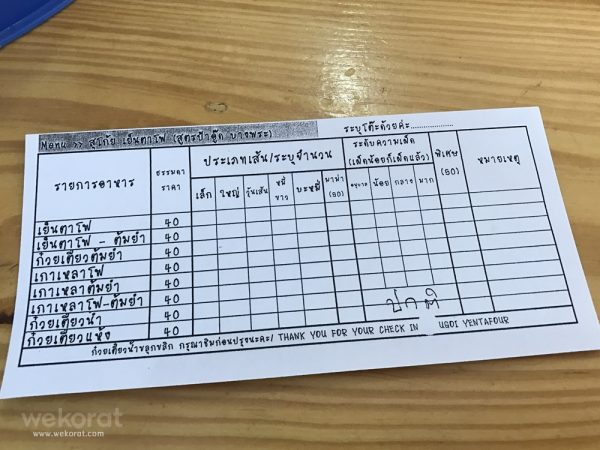 Menu >> สุโก้ย เย็นตาโฟ (สูตรป้าตุ๊ด บางพระ)
ระบุโต๊ะด้วยค่ะ................
รายการอาหาร ธรรมดา ราคา ประเภทเส้น/ระบุจำนวน ระดับความเผ็ด (เผ็ดน้อยก็เผ็ดแล้ว) พิเศษ (50) หมายเหตุ
เล็ก ใหญ่ วุ้นเส้น หมี่ขาว บะหมี่ มาม่า (50) อนุบาล น้อย กลาง มาก
เย็นตาโฟ 40
เย็นตาโฟ - ต้มยำ 40
ก๋วยเตี๋ยวต้มยำ 40
เกาเหลาโฟ 40
เกาเหลาต้มยำ 40
เกาเหลาโฟ-ต้มยำ 40
ก๋วยเตี๋ยวน้ำ 40
ก๋วยเตี๋ยวแห้ง 40
ปกติ
ก๋วยเตี๋ยวน้ำขลุกขลิก กรุณาชิมก่อนปรุงนะคะ/ THANK YOU FOR YOUR CHECK IN UGOI YENTAFOUR
wekorat
www.wekorat.com